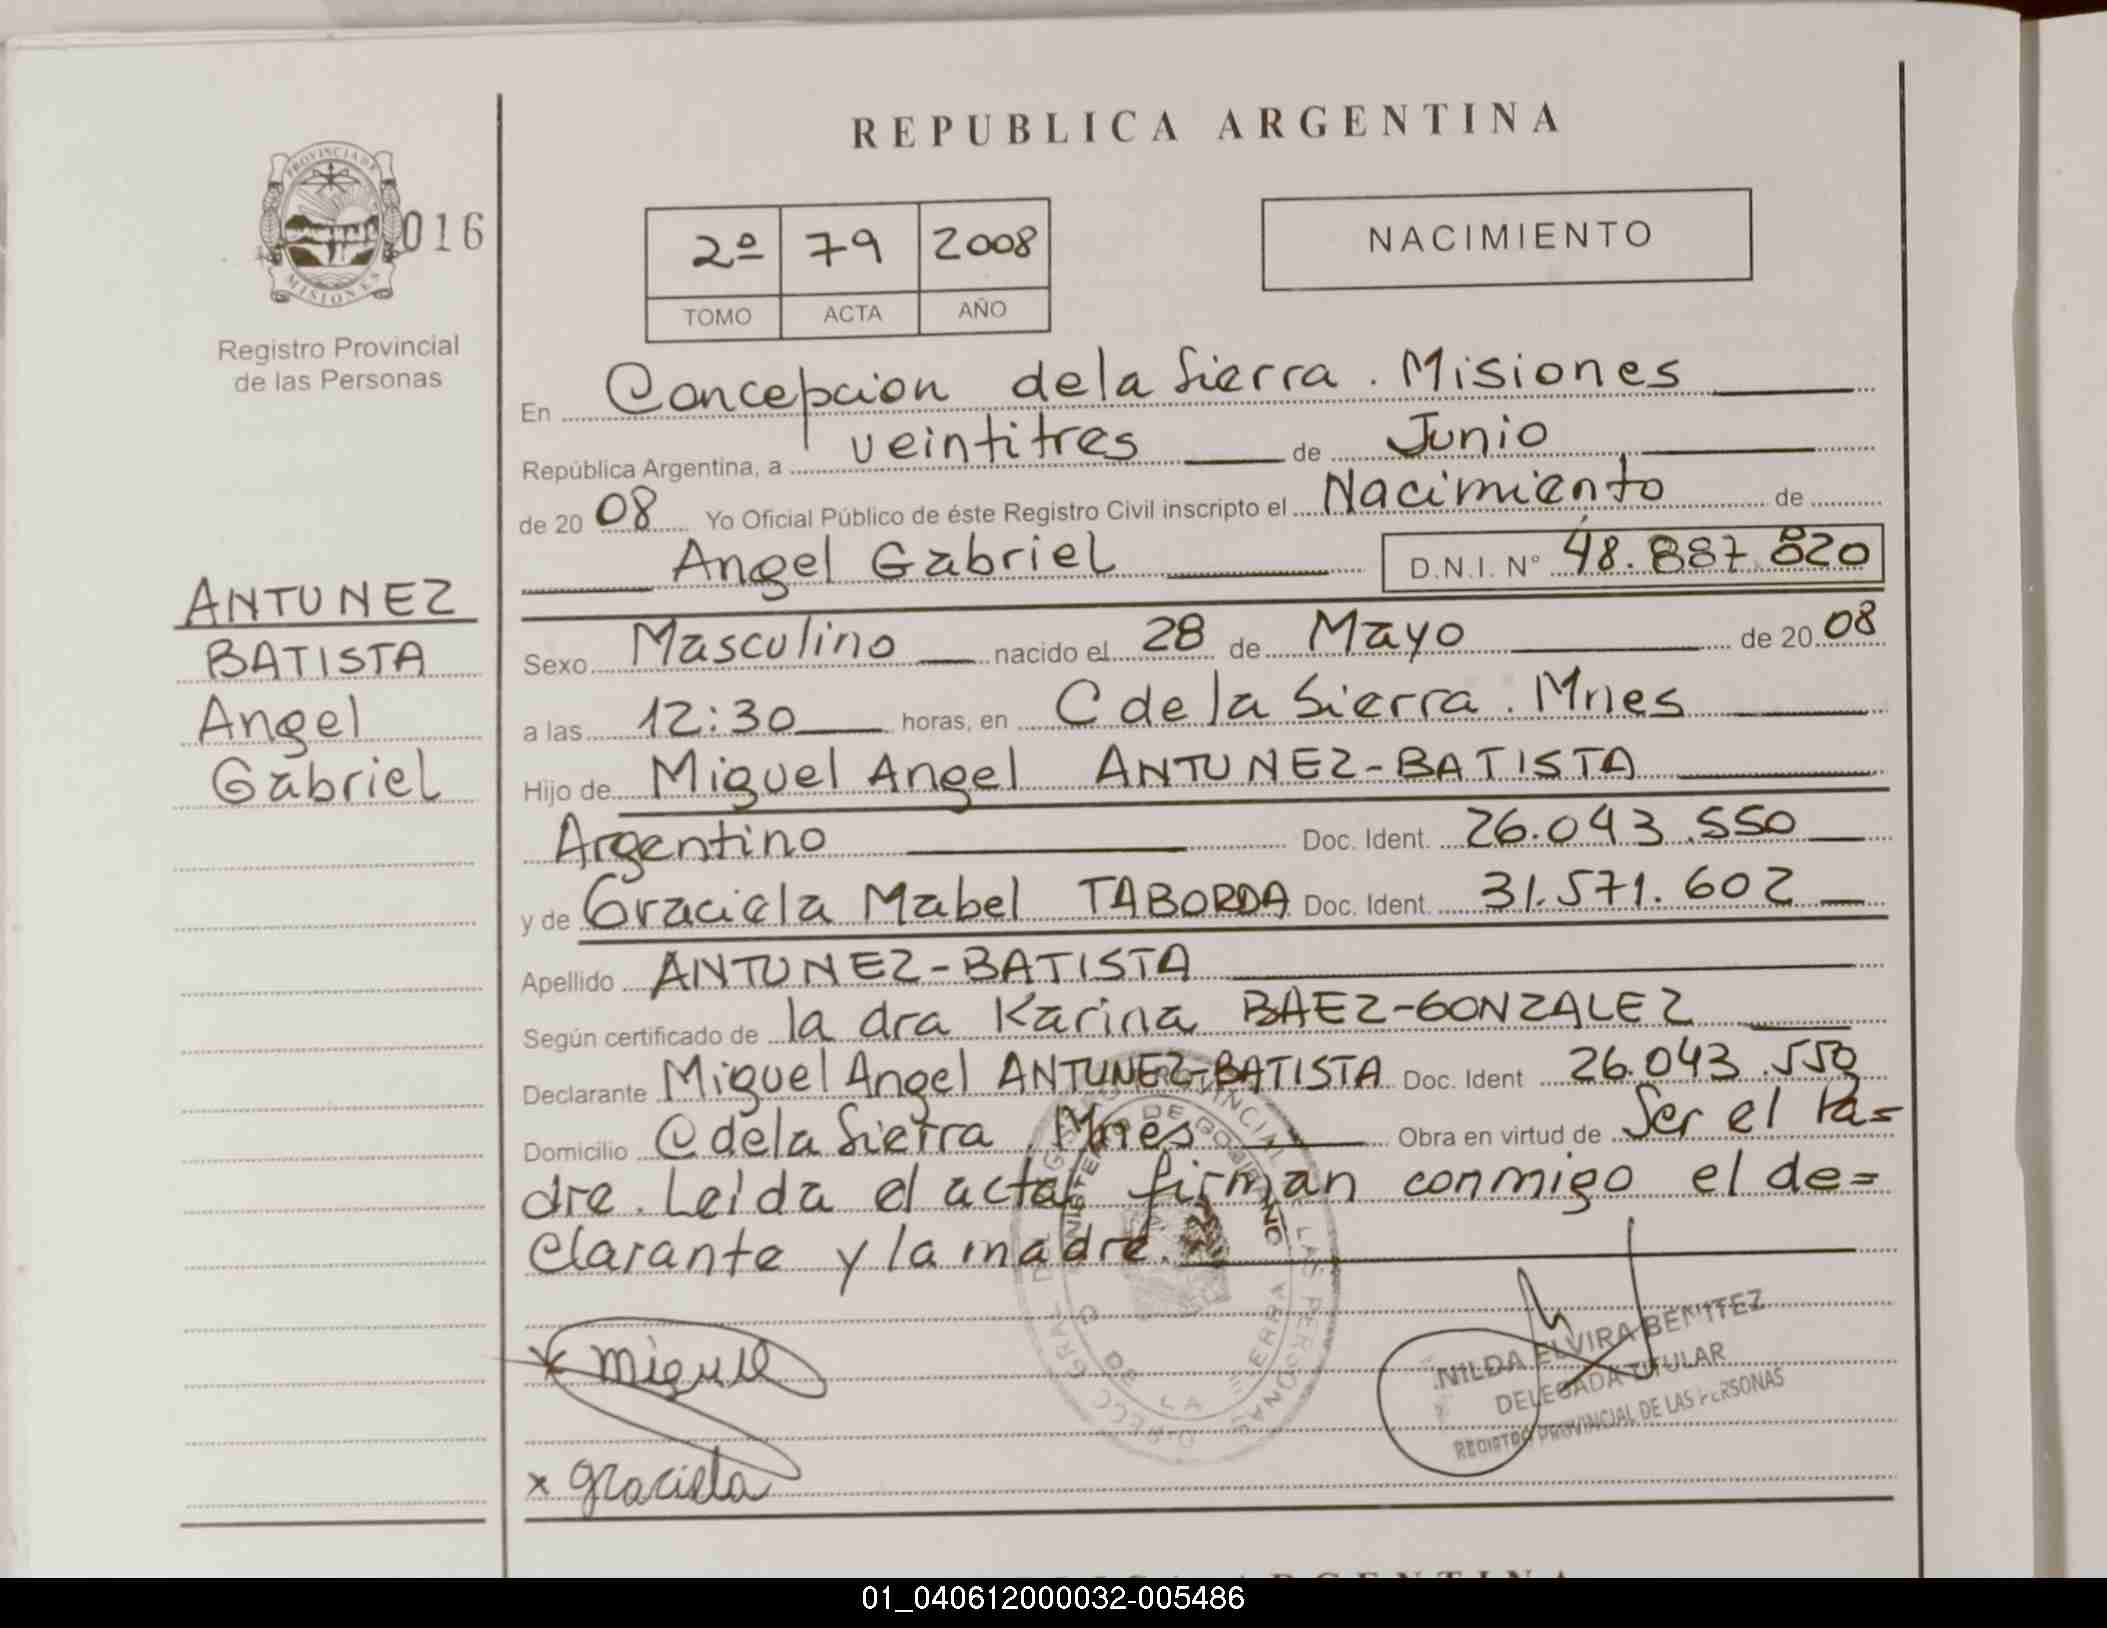 REPUBLICA ARGENTINA
PROVINCIA DE
MISIONES
016
Registro Provincial
de las Personas
2º 79 2008
TOMO ACTA AÑO
NACIMIENTO
En Concepcion de la Sierra. Misiones
República Argentina, a veintitres de Junio
de 2008 Yo Oficial Público de éste Registro Civil inscripto el Nacimiento de
Angel Gabriel D.N.I. Nº 48.887.820
ANTUNEZ
BATISTA
Angel
Gabriel
Sexo Masculino nacido el 28 de Mayo de 2008
a las 12:30 horas, en C de la Sierra. Mnes
Hijo de Miguel Angel ANTUNEZ-BATISTA
Argentino Doc. Ident. 26.043.550
y de Graciela Mabel TABORDA Doc. Ident. 31.571.602
Apellido ANTUNEZ-BATISTA
Según certificado de la dra Karina BAEZ-GONZALEZ
Declarante Miguel Angel ANTUNEZ-BATISTA Doc. Ident 26.043.550
Domicilio C de la Sierra. Mnes Obra en virtud de Ser el Pa=
dre. Leida el acta, firman conmigo el de=
clarante y la madre.
x Miguel
x Graciela
NILDA ELVIRA BENITEZ
DELEGADA TITULAR
REGISTRO PROVINCIAL DE LAS PERSONAS
01_040612000032-005486